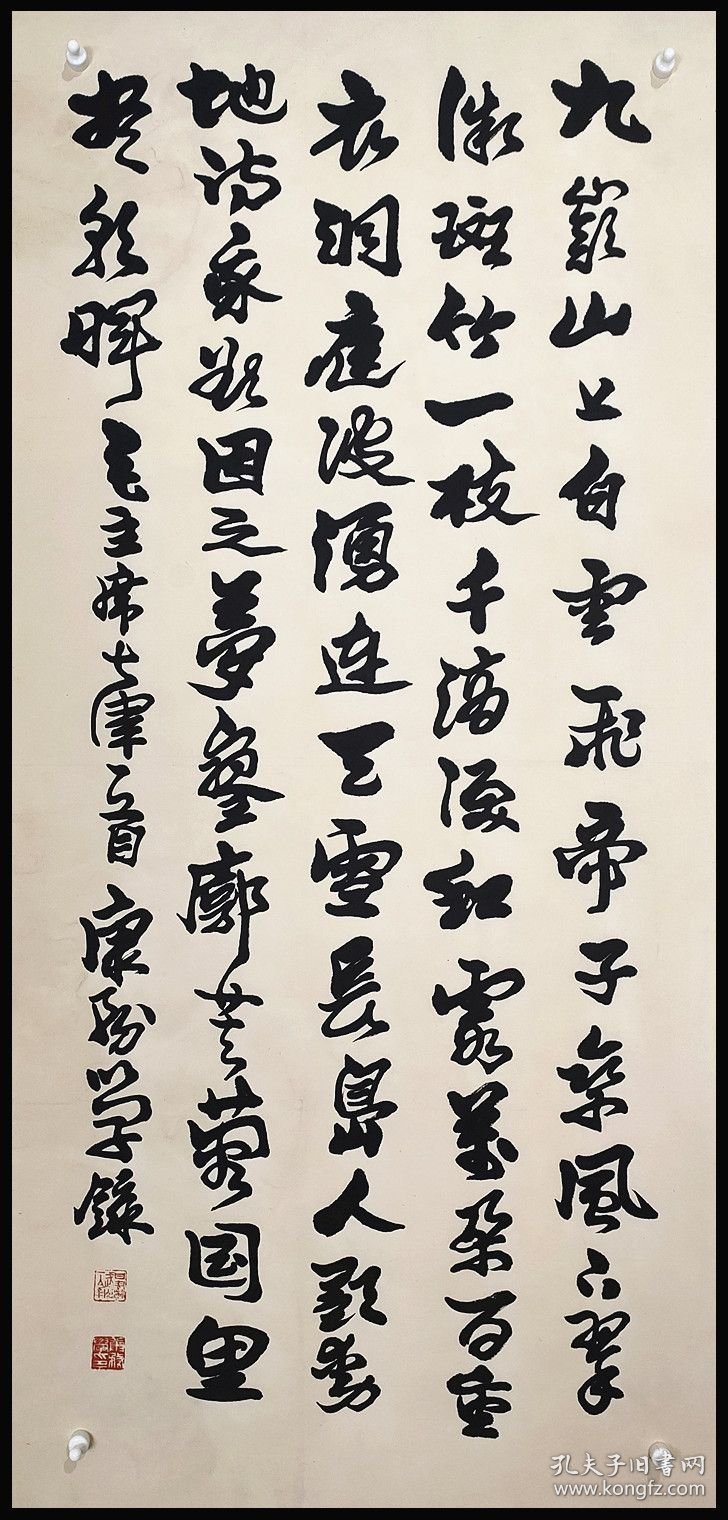 九嶷山上白雲飛帝子乘風下翠
微斑竹一枝千滴淚紅霞萬朵百重
衣洞庭波湧連天雪長島人歌動
地詩我欲因之夢寥廓芙蓉国里
尽朝暉 毛主席七律一首 康務学錄
孔夫子旧書网
www.kongfz.com